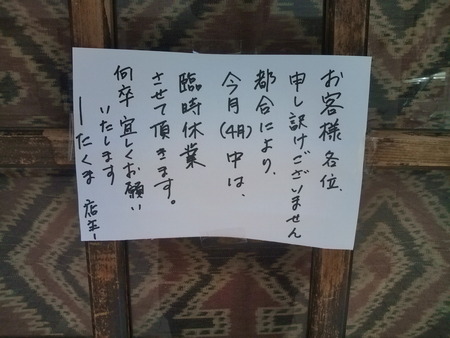 お客様各位、
申し訳けございません
都合により、
今月(4月)中は、
臨時休業
させて頂きます。
何卒宜しくお願い
いたします
ーたくま 店主ー